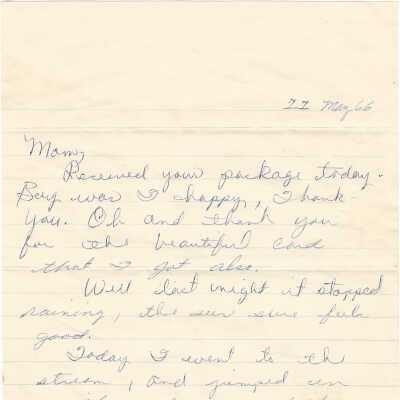 II May 66
Mom,
Received your package today.
Boy was I happy, Thank-
you. Oh and thank you
for the beautiful card
that I got also.
Well last night it stopped
raining, the sun sure feels
good.
Today I went to the
stream, and jumped in